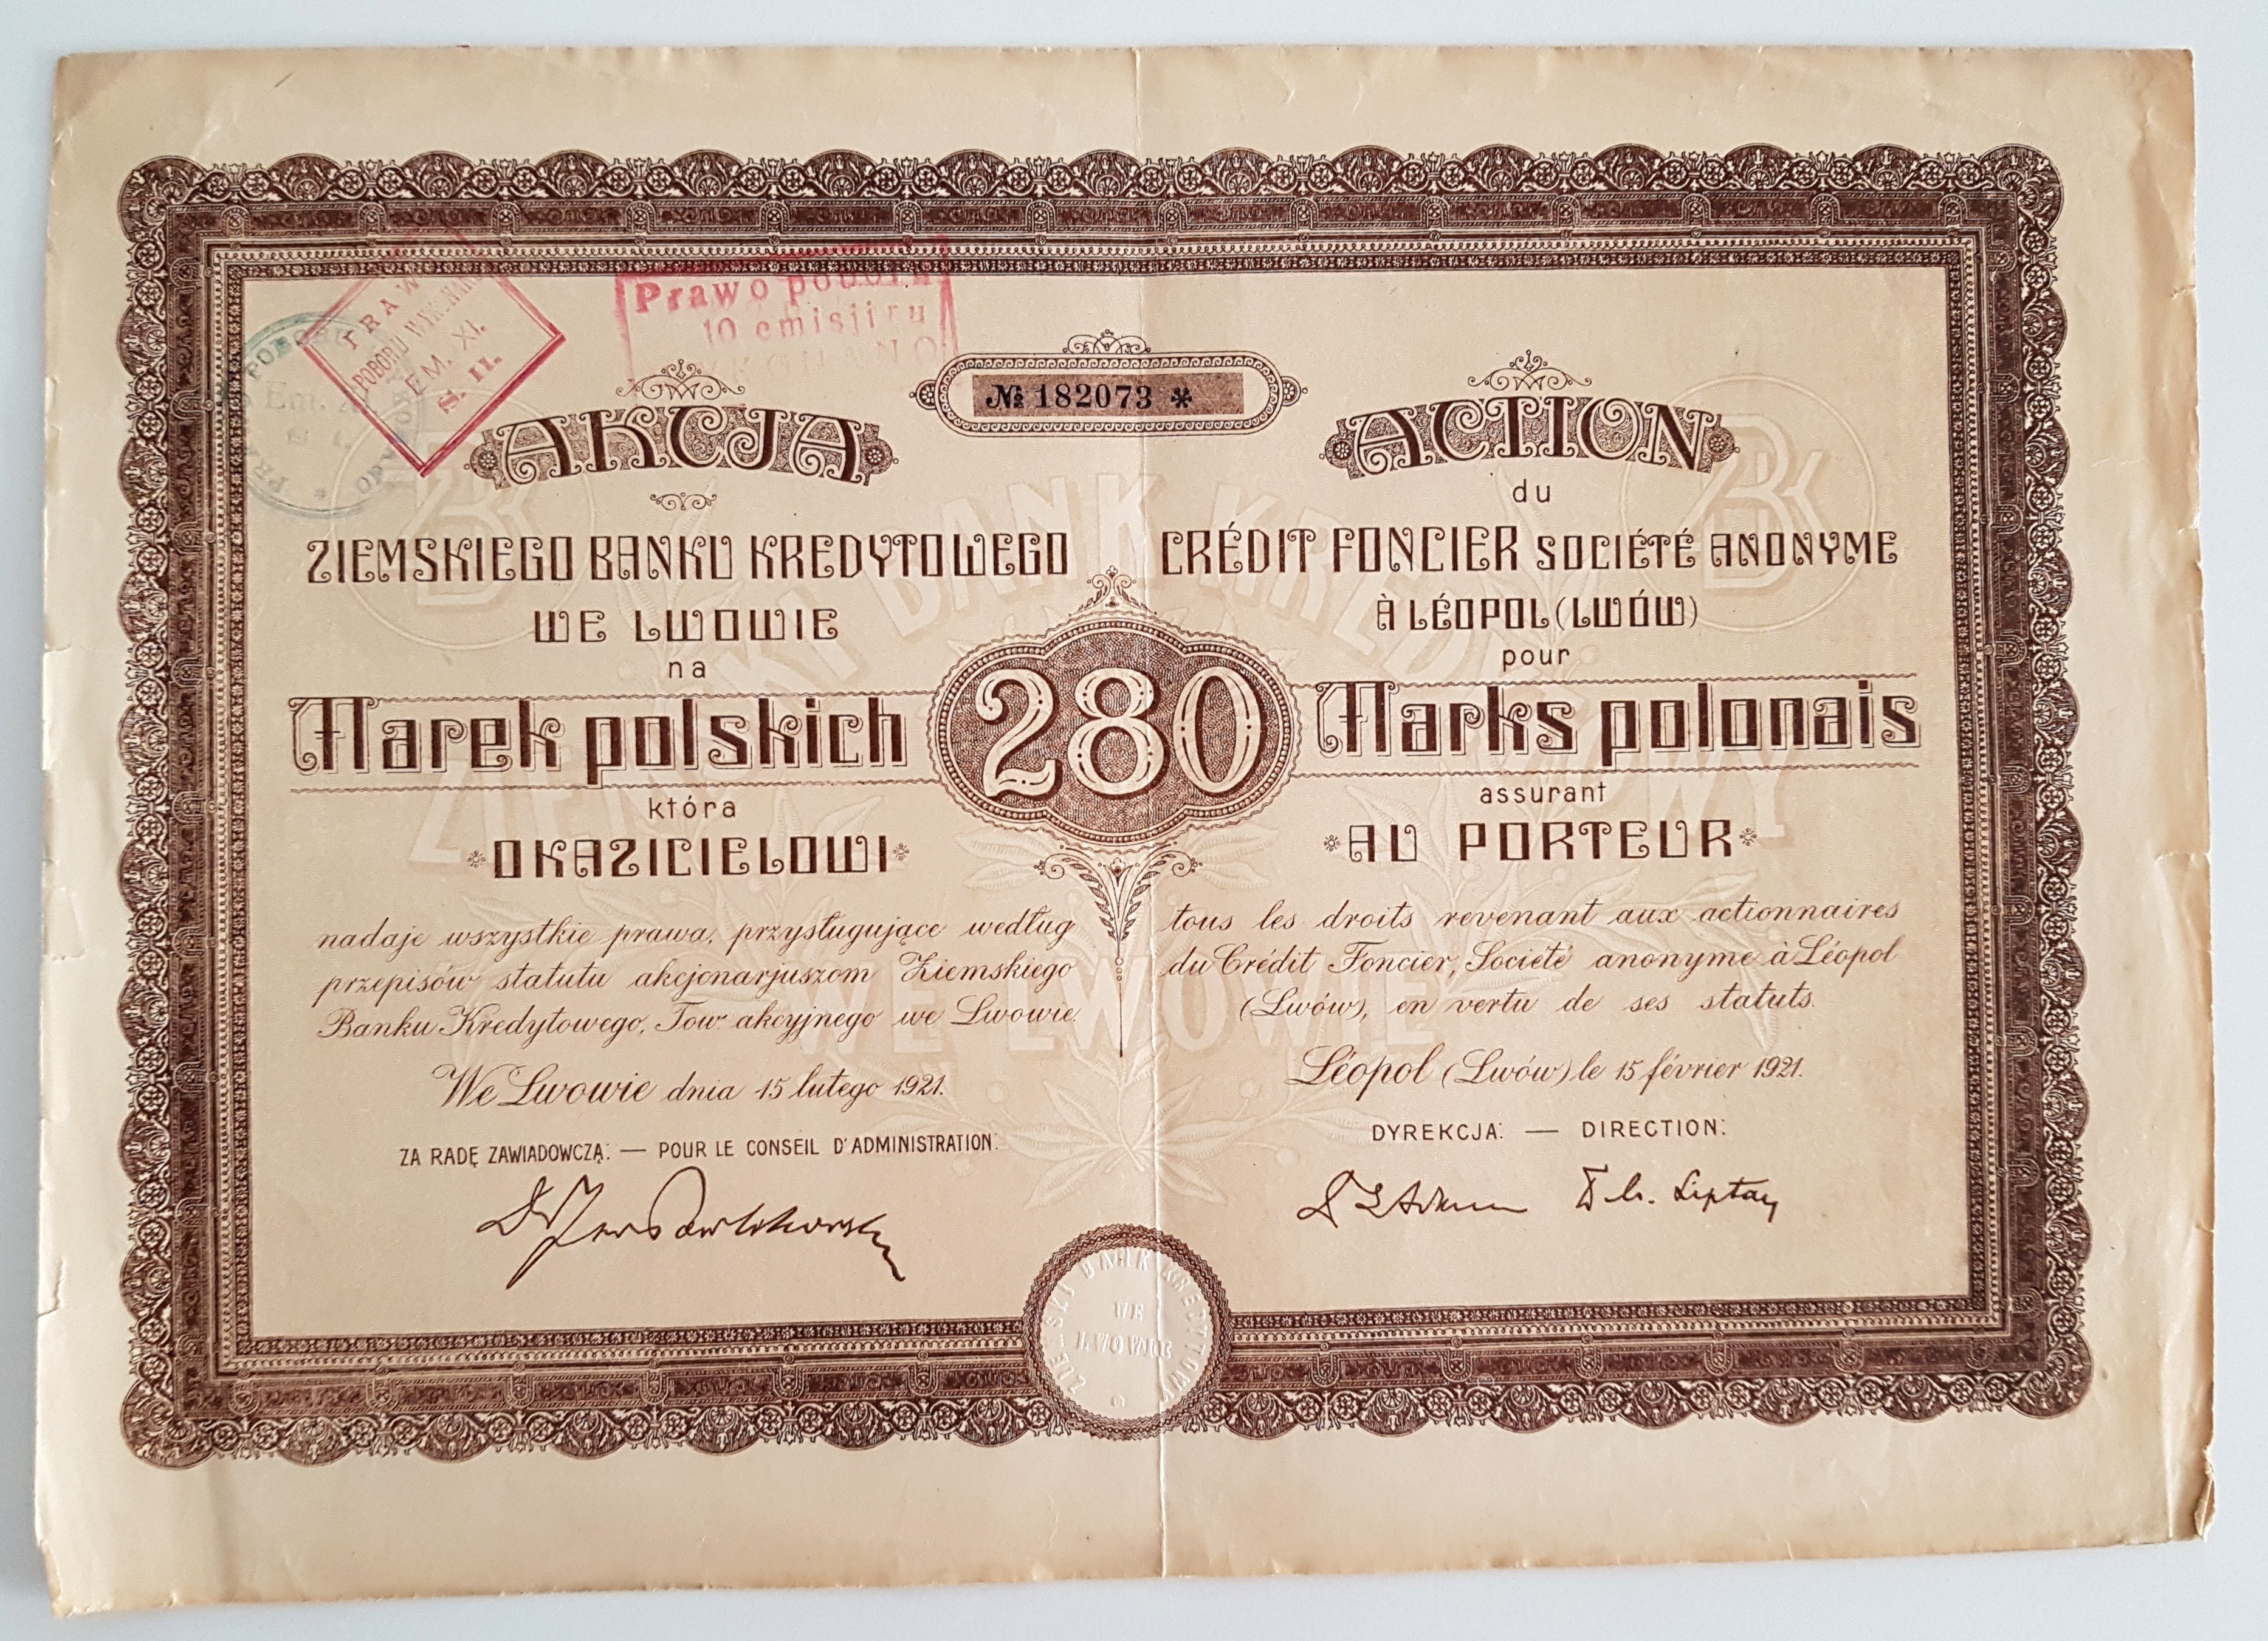 PRAWO
POBORU WYKONANE
EM. XI.
S. II.
Prawo poboru
10 emisji ru
WYKONANO
POBORU
Em. XI
№ 182073 *
AKCJA
ZIEMSKIEGO BANKU KREDYTOWEGO
WE LWOWIE
na
Marek polskich
która
OKAZICIELOWI
nadaje wszystkie prawa, przysługujące według
przepisów statutu akcjonarjuszom Ziemskiego
Banku Kredytowego, Tow. akcyjnego we Lwowie.
We Lwowie dnia 15 lutego 1921.
ZA RADĘ ZAWIADOWCZĄ: — POUR LE CONSEIL D'ADMINISTRATION:
280
ACTION
du
CRÉDIT FONCIER SOCIÉTÉ ANONYME
À LÉOPOL (LWÓW)
pour
Marks polonais
assurant
AU PORTEUR
tous les droits revenant aux actionnaires
du Crédit Foncier, Société anonyme à Léopol
(Lwów), en vertu de ses statuts.
Léopol (Lwów) le 15 février 1921.
DYREKCJA: — DIRECTION:
ZIEMSKI BANK KREDYTOWY
WE LWOWIE
ZIEMSKI BANK KREDYTOWY
WE
LWOWIE